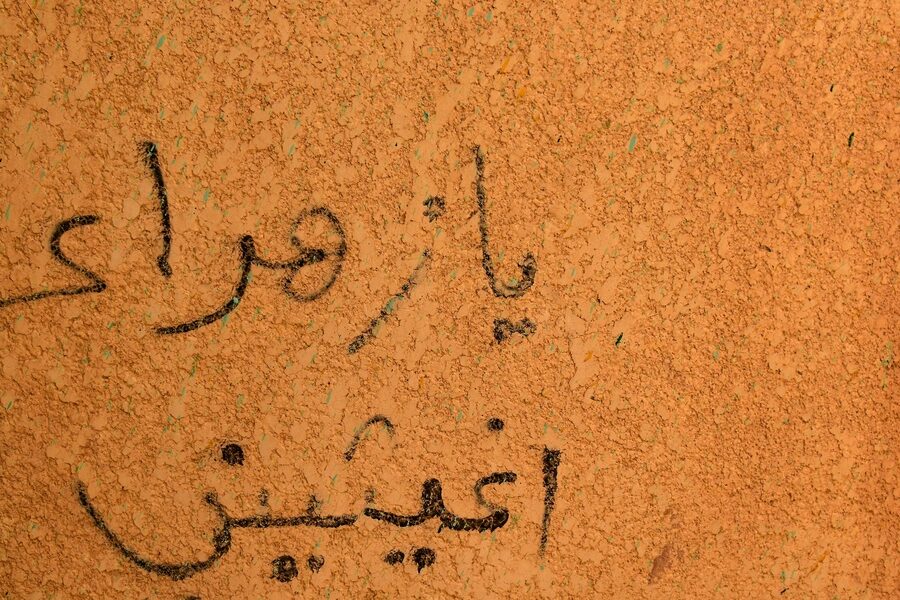 يا زهراء
اغيثين